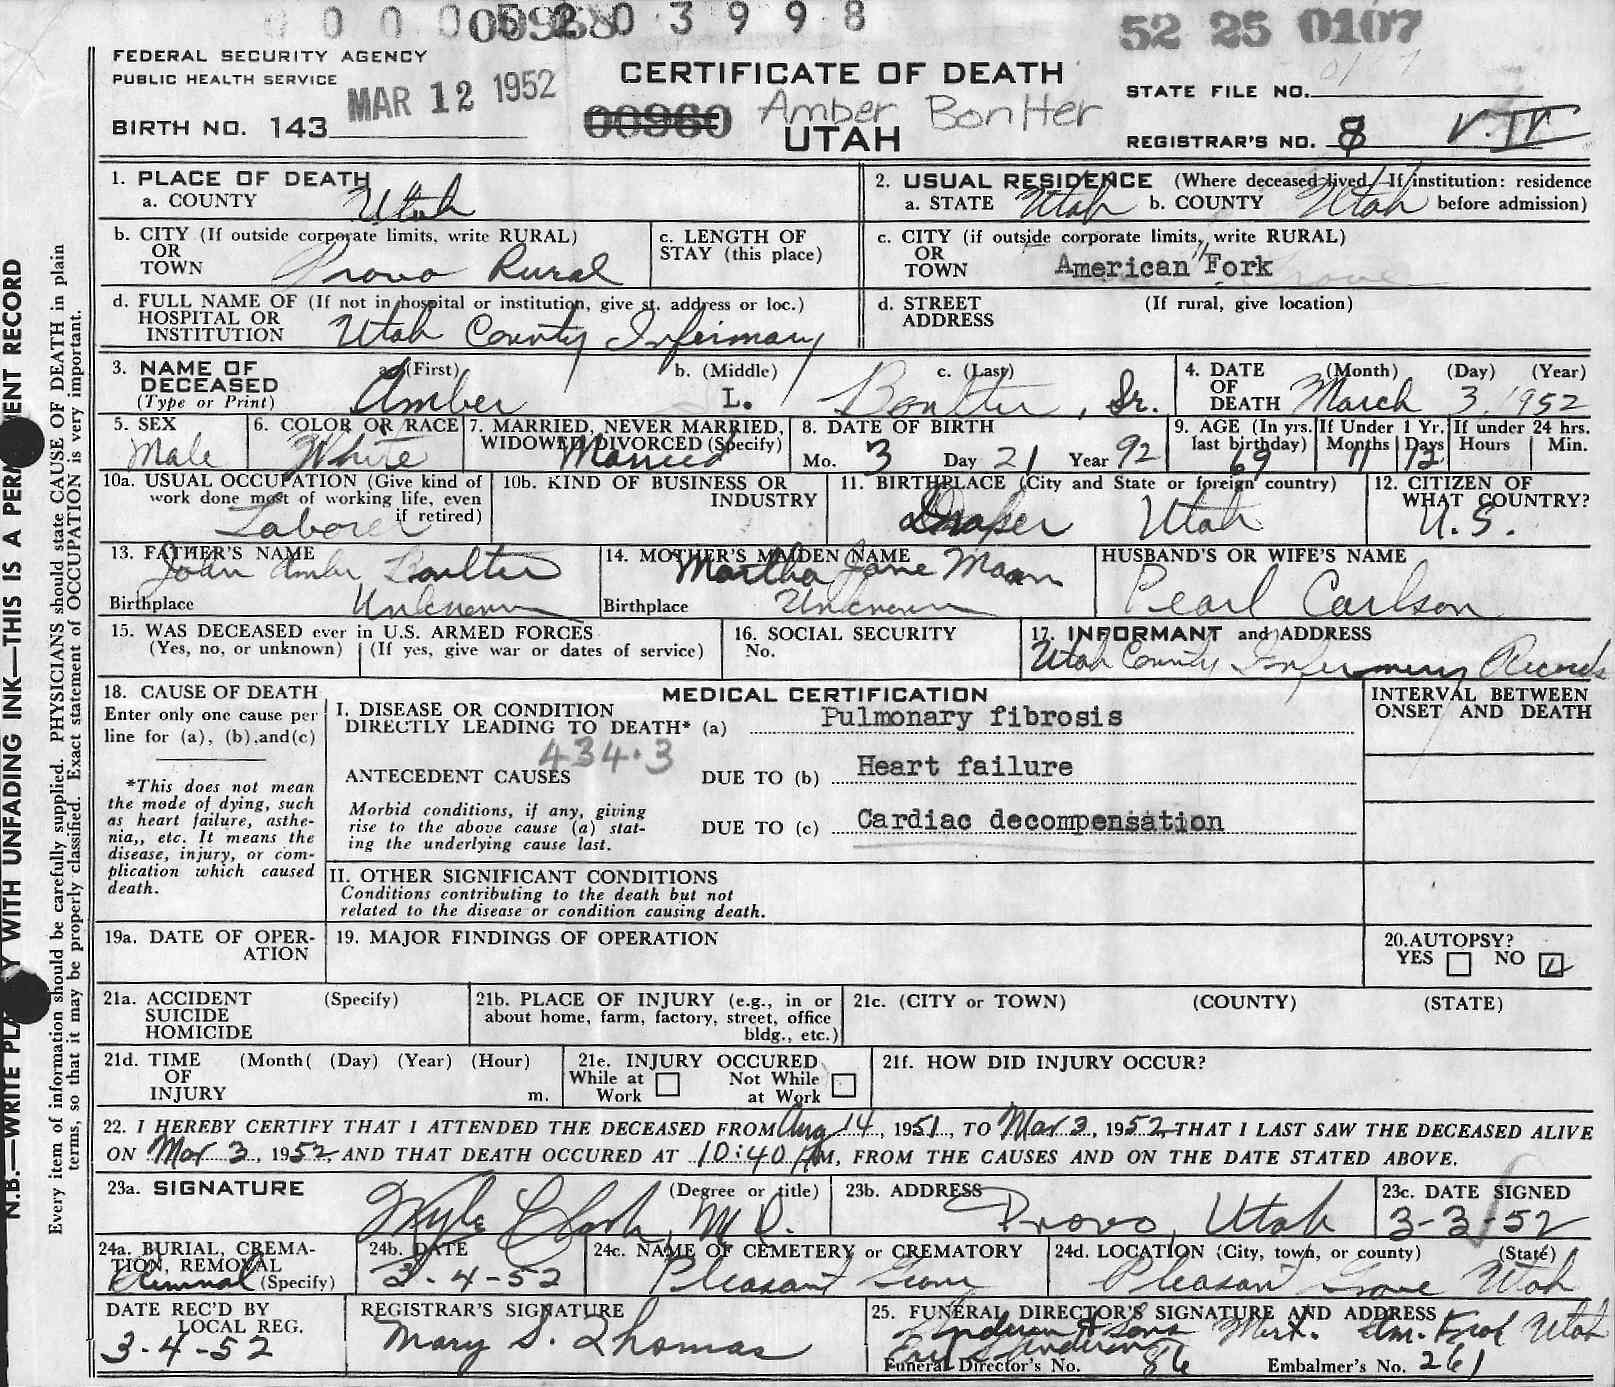 0 0 0 0 5 2 0 3 9 9 8
52 25 0107
FEDERAL SECURITY AGENCY
PUBLIC HEALTH SERVICE
MAR 12 1952
BIRTH NO. 143
CERTIFICATE OF DEATH
00960 Amber Bontter
UTAH
STATE FILE NO.
REGISTRAR'S NO. 8
1. PLACE OF DEATH
a. COUNTY Utah
2. USUAL RESIDENCE (Where deceased lived. If institution: residence
a. STATE Utah b. COUNTY Utah before admission)
b. CITY (If outside corporate limits, write RURAL)
OR
TOWN Provo Rural
c. LENGTH OF
STAY (this place)
c. CITY (if outside corporate limits, write RURAL)
OR
TOWN American Fork
d. FULL NAME OF (If not in hospital or institution, give st. address or loc.)
HOSPITAL OR
INSTITUTION Utah County Infirmary
d. STREET (If rural, give location)
ADDRESS
3. NAME OF
DECEASED
(Type or Print)
a. (First) Amber
b. (Middle) L.
c. (Last) Boulter, Sr.
4. DATE (Month) (Day) (Year)
OF
DEATH March 3, 1952
5. SEX
Male
6. COLOR OR RACE
White
7. MARRIED, NEVER MARRIED,
WIDOWED, DIVORCED (Specify)
Married
8. DATE OF BIRTH
Mo. 3 Day 21 Year 92
9. AGE (In yrs.
last birthday)
69
If Under 1 Yr.
Months Days
11 12
If under 24 hrs.
Hours Min.
10a. USUAL OCCUPATION (Give kind of
work done most of working life, even
if retired)
Laborer
10b. KIND OF BUSINESS OR
INDUSTRY
11. BIRTHPLACE (City and State or foreign country)
Draper Utah
12. CITIZEN OF
WHAT COUNTRY?
U.S.
13. FATHER'S NAME
John Amber Boulter
Birthplace Unknown
14. MOTHER'S MAIDEN NAME
Martha Jane Mann
Birthplace Unknown
HUSBAND'S OR WIFE'S NAME
Pearl Carlson
15. WAS DECEASED ever in U.S. ARMED FORCES
(Yes, no, or unknown) (If yes, give war or dates of service)
16. SOCIAL SECURITY
No.
17. INFORMANT and ADDRESS
Utah County Infirmary Records
18. CAUSE OF DEATH
Enter only one cause per
line for (a), (b), and(c)
*This does not mean
the mode of dying, such
as heart failure, asthe-
nia,, etc. It means the
disease, injury, or com-
plication which caused
death.
MEDICAL CERTIFICATION
I. DISEASE OR CONDITION
DIRECTLY LEADING TO DEATH* (a) Pulmonary fibrosis
434.3
ANTECEDENT CAUSES DUE TO (b) Heart failure
Morbid conditions, if any, giving
rise to the above cause (a) stat-
ing the underlying cause last.
DUE TO (c) Cardiac decompensation
II. OTHER SIGNIFICANT CONDITIONS
Conditions contributing to the death but not
related to the disease or condition causing death.
INTERVAL BETWEEN
ONSET AND DEATH
19a. DATE OF OPER-
ATION
19. MAJOR FINDINGS OF OPERATION
20. AUTOPSY?
YES NO
21a. ACCIDENT (Specify)
SUICIDE
HOMICIDE
21b. PLACE OF INJURY (e.g., in or
about home, farm, factory, street, office
bldg., etc.)
21c. (CITY or TOWN) (COUNTY) (STATE)
21d. TIME (Month( (Day) (Year) (Hour)
OF
INJURY m.
21e. INJURY OCCURED
While at Work
Not While at Work
21f. HOW DID INJURY OCCUR?
22. I HEREBY CERTIFY THAT I ATTENDED THE DECEASED FROM Aug 14, 1951, TO Mar 3, 1952, THAT I LAST SAW THE DECEASED ALIVE
ON Mar 3, 1952, AND THAT DEATH OCCURED AT 10:40 AM, FROM THE CAUSES AND ON THE DATE STATED ABOVE.
23a. SIGNATURE (Degree or title)
Clark, M.D.
23b. ADDRESS
Provo, Utah
23c. DATE SIGNED
3-3-52
24a. BURIAL, CREMA-
TION, REMOVAL
(Specify)
Removal
24b. DATE
3-4-52
24c. NAME OF CEMETERY or CREMATORY
Pleasant Grove
24d. LOCATION (City, town, or county) (State)
Pleasant Grove Utah
DATE REC'D BY
LOCAL REG.
3-4-52
REGISTRAR'S SIGNATURE
Mary S. Thomas
25. FUNERAL DIRECTOR'S SIGNATURE AND ADDRESS
Anderson & Sons Mort. Am. Fork Utah
Funeral Director's No. 86 Embalmer's No. 261
N.B.—WRITE PLA Y WITH UNFADING INK—THIS IS A PERM ENT RECORD
Every item of information should be carefully supplied. PHYSICIANS should state CAUSE OF DEATH in plain
terms, so that it may be properly classified. Exact statement of OCCUPATION is very important.